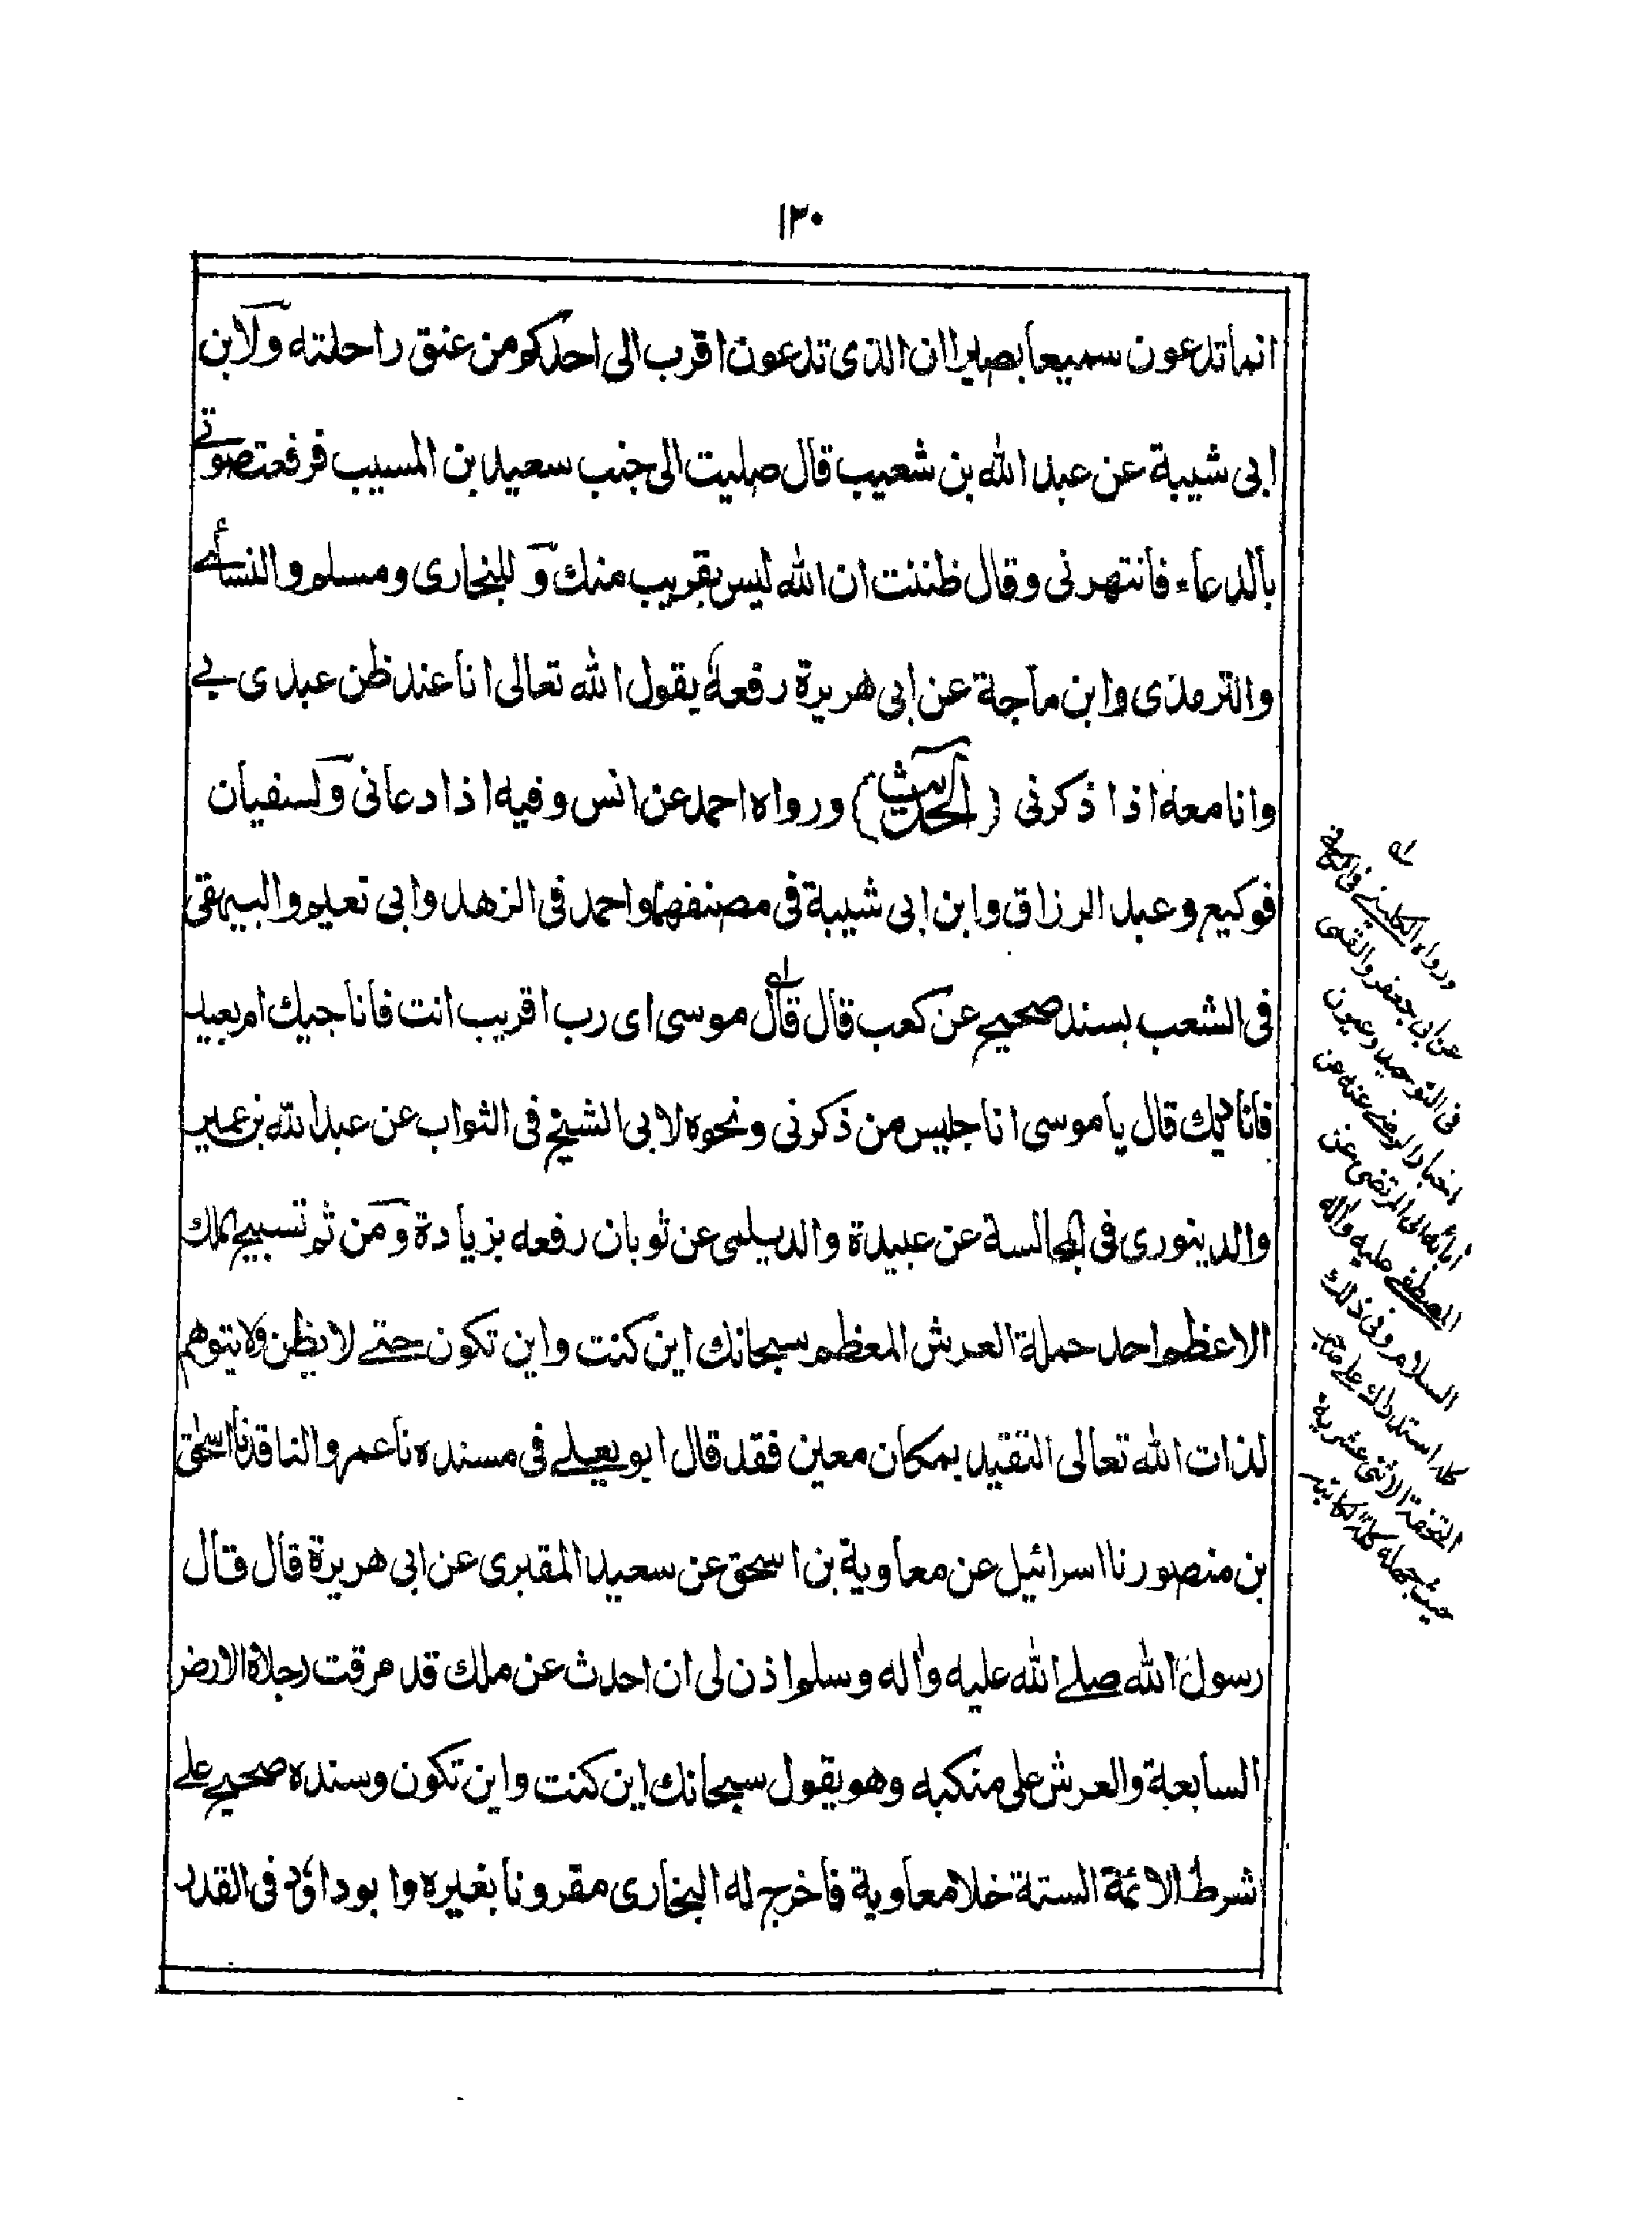 ١٣٠
انما تدعون سميعا بصيرا ان الذى تدعون اقرب الى احدكم من عنق راحلته ولابن
ابى شيبة عن عبد الله بن شعيب قال صليت الى جنب سعيد بن المسيب فرفعت صوتى
بالدعاء فانتهرنى وقال ظننت ان الله ليس بقريب منك و للبخارى ومسلم والنسائى
والترمذى وابن ماجة عن ابى هريرة رفعه يقول الله تعالى انا عند ظن عبدى بى
وانا معه اذا ذكرنى (الحديث) ورواه احمد عن انس وفيه اذا دعانى ولسفيان
فوكيع وعبد الرزاق وابن ابى شيبة فى مصنفهما واحمد فى الزهد وابى نعيم والبيهقى
فى الشعب بسند صحيح عن كعب قال قال له موسى اى رب اقريب انت فاناجيك ام بعيد
فاناديك قال يا موسى انا جليس من ذكرنى ونحوه لابى الشيخ فى الثواب عن عبد الله بن عمير
والدينورى فى المجالسة عن عبيدة والديلمى عن ثوبان رفعه بزيادة ومن ثم تسبيح الملك
الاعظم احد حملة العرش المعظم سبحانك اين كنت واين تكون حتى لا يظن ولا يتوهم
لذات الله تعالى التقيد بمكان معين فقد قال ابو يعلى فى مسنده نا عمرو الناقد نا اسحق
بن منصور نا اسرائيل عن معاوية بن اسحق عن سعيد المقبرى عن ابى هريرة قال قال
رسول الله صلى الله عليه واله وسلم اذن لى ان احدث عن ملك قد مرقت رجلاه الارض
السابعة والعرش على منكبه وهو يقول سبحانك اين كنت واين تكون وسنده صحيح على
شرط الائمة الستة خلا معاوية فاخرج له البخارى مقرونا بغيره وابو داؤد فى القدر
له
ورواه الكلينى فى
عن ابى جعفر والقمى
فى التوحيد وعيون
اخبار الرضى عنه عن
آبائه الى المرتضى عن
المصطفى عليه واله
السلام وفى ذلك
استدراك على
التحفة الاثنى عشرية
حيث جعله